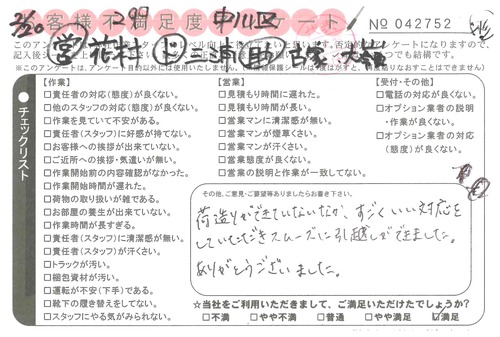 2/20 299 中川区
お客様不満足度アンケート
No 042752
営 花村 ド 三浦 助 古家、大
【作業】
□責任者の対応(態度)が良くない。
□他のスタッフの対応(態度)が良くない。
□作業を見ていて不安がある。
□責任者(スタッフ)に好感が持てない。
□お客様への挨拶が出来ていない。
□ご近所への挨拶・気遣いが無い。
□作業開始前の内容確認がなかった。
□作業開始時間が遅れた。
□荷物の取り扱いが雑である。
□お部屋の養生が出来ていない。
□作業時間が長すぎる。
□責任者(スタッフ)に清潔感が無い。
□責任者(スタッフ)が汗くさい。
□トラックが汚い。
□梱包資材が汚い。
□運転が不安(下手)である。
□靴下の履き替えをしてない。
□スタッフにやる気がみられない。
●チェックリスト
【営業】
□見積もりに遅れた。
□見積もり時間が長い。
□営業マンに清潔感が無い。
□営業マンが煙草くさい。
□営業マンが汗くさい。
□営業態度が良くない。
□営業の説明と作業が一致してない。
【受付・その他】
□電話の対応が良くない。
□オプション業者の説明
・作業が良くない。
□オプション業者の対応
(態度)が良くない。
その他、ご意見・ご要望等ありましたらお書き下さい。
荷造りができていないなか、すごくいい対応を
していただきスムーズに引越しができました。
ありがとうございました。
☆当社をご利用いただきまして、ご満足いただけたでしょうか?
□不満 □やや不満 □普通 □やや満足 ☑満足